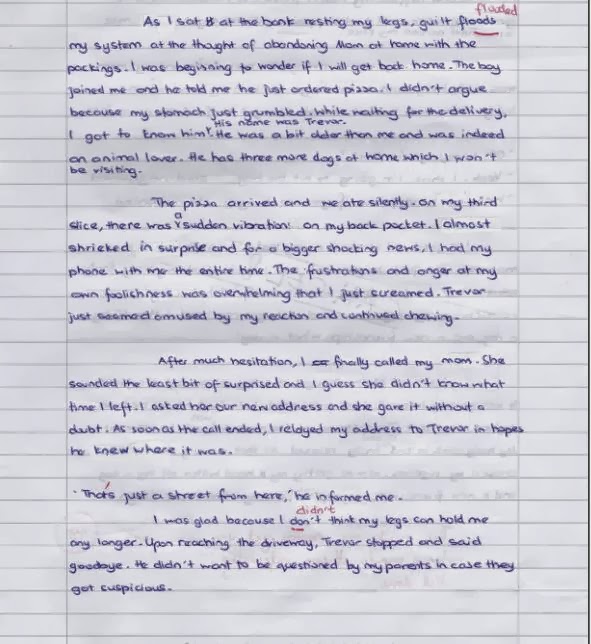 flooded
As I sat at the bank resting my legs, guilt floods
my system at the thought of abandoning Mom at home with the
packings. I was beginning to wonder if I will get back home. The boy
joined me and he told me he just ordered pizza. I didn't argue
because my stomach just grumbled. While waiting for the delivery,
His name was Trevor.
I got to know him. He was a bit older than me and was indeed
an animal lover. He has three more dogs at home which I won't
be visiting.
The pizza arrived and we ate silently. On my third
a
slice, there was sudden vibration on my back pocket. I almost
shrieked in surprise and for a bigger shocking news, I had my
phone with me the entire time. The fustrations and anger at my
own foolishness was overwhelming that I just screamed. Trevor
just seemed amused by my reaction and continued chewing.
After much hesitation, I finally called my mom. She
sounded the least bit of surprised and I guess she didn't know what
time I left. I asked her our new address and she gave it without a
doubt. As soon as the call ended, I relayed my address to Trevor in hopes
he knew where it was.
'That's just a street from here,' he informed me.
didn't
I was glad because I don't think my legs can hold me
any longer. Upon reaching the driveway, Trevor stopped and said
goodbye. He didn't want to be questioned by my parents in case they
got suspicious.